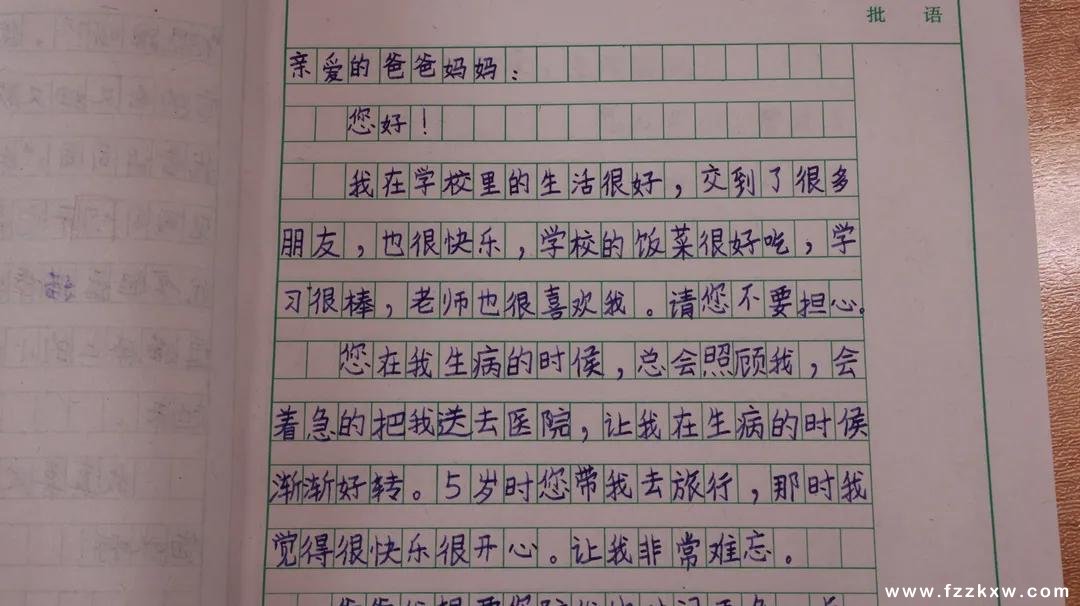 批 语
亲爱的爸爸妈妈：
您好！
我在学校里的生活很好，交到了很多
朋友，也很快乐，学校的饭菜很好吃，学
习很棒，老师也很喜欢我。请您不要担心。
您在我生病的时侯，总会照顾我，会
着急的把我送去医院，让我在生病的时侯
渐渐好转。5岁时您带我去旅行，那时我
觉得很快乐很开心。让我非常难忘。
www.fzzkxw.com